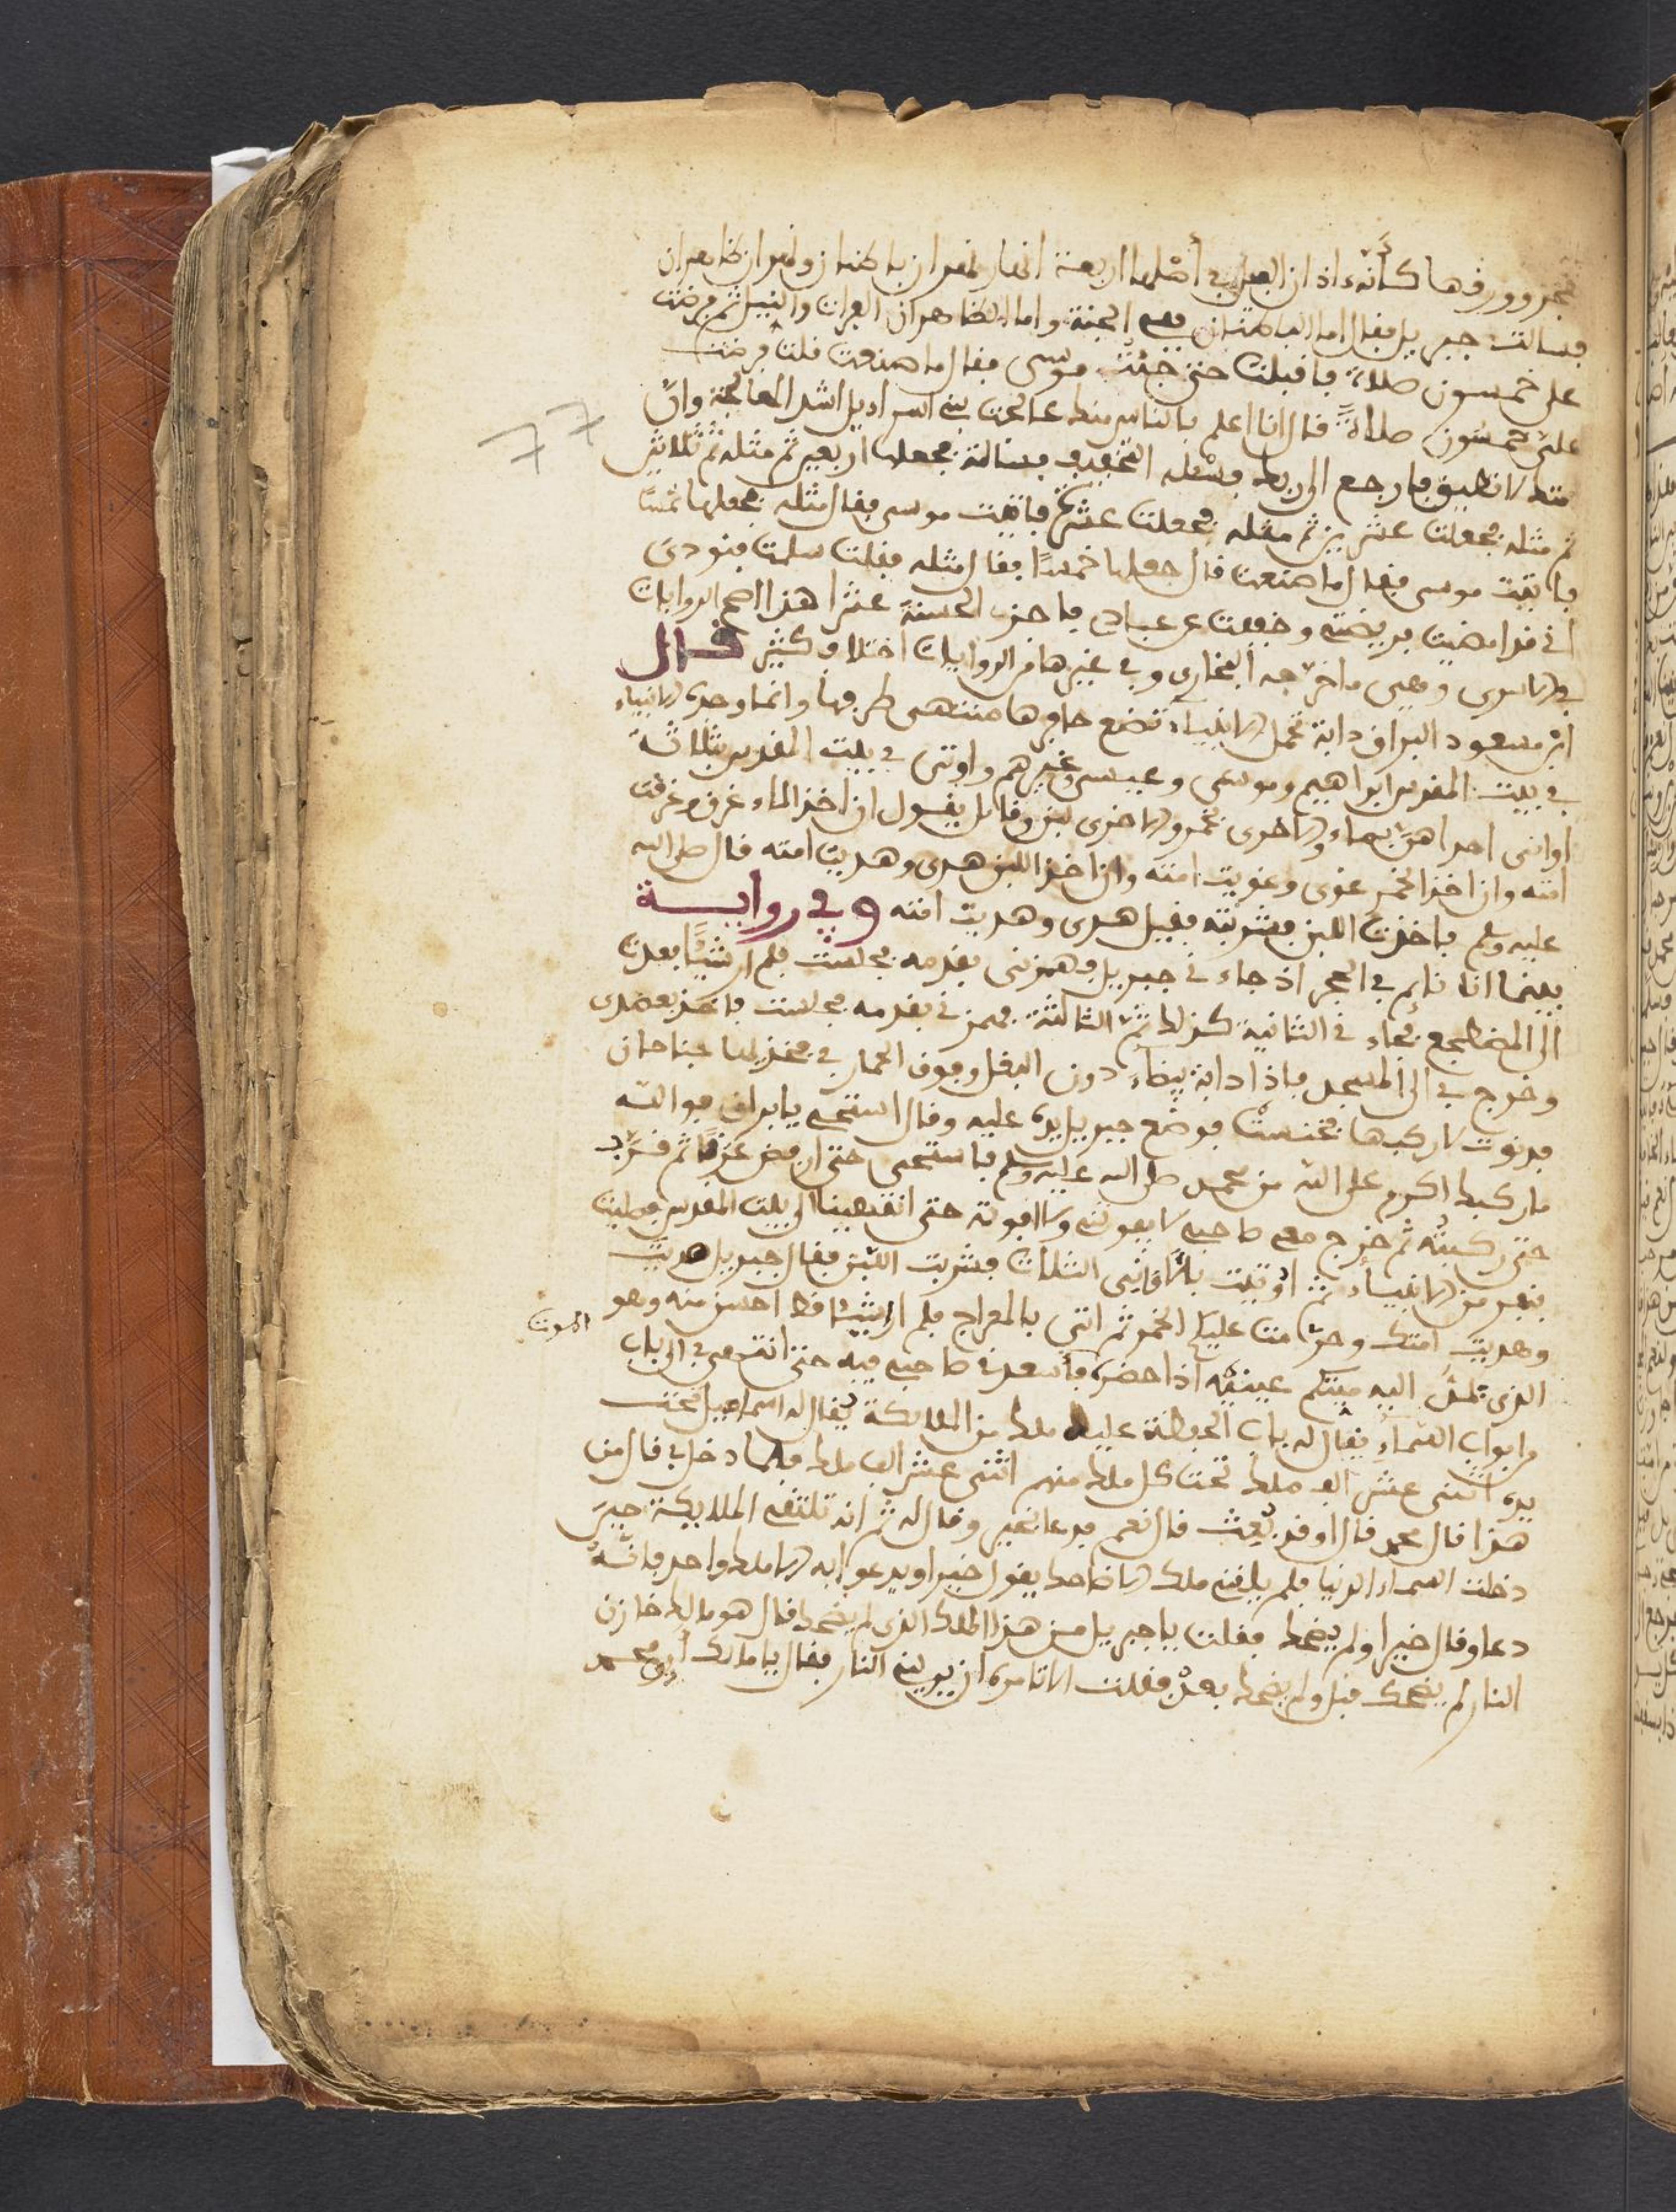 هجر وورقها كأنّه ءاذان الفيل في أصلها اربعة انهار نهران باطنان ونهران ظاهران
فسالت جبريل فقال اما الباطنان ففي الجنة واما الظاهران الفرات والنيل ثم فرضت
على خمسون صلاة فاقبلت حتى جئت موسى فقال ما صنعت قلت فرضت
علىّ خمسون صلاةً قال انا اعلم بالناس منك عالجت بني اسراءيل اشد المعالجة وانّ
امتك لا تطيق فارجع الى ربك فسئله التخفيف فسالته فجعلها اربعين ثم مثله ثم ثلاثين
ثم مثله فجعلت عشرين ثم مثله فجعلت عشرًا فاتيت موسى فقال مثله فجعلها خمسًا
فاتيت موسى فقال ما صنعت قال جعلها خمسًا فقال مثله فقلت سلمت فنودي
اني قد امضيت فريضتي وخففت عن عبادي فاجزى الحسنة عشرا هذا اصح الروايات
في الاسرى وهي ما اخرجه البخاري وفي غيرها من الروايات اختلاف كثير قال
ابن مسعود البراق دابة تحمل الانبياء تضع حافرها منتهى طرفها وانما وجد الانبياء
في بيت المقدس ابراهيم وموسى وعيسى وغيرهم واوتى في بيت المقدس بثلاثة
اواني احداهنّ بماء والاخرى بخمر والاخرى لبن وقائل يقول ان اخذ الماء غرق وغرقت
امته وان اخذ الخمر غوى وغويت امته وان اخذ اللبن هدى وهديت امته قال صلى الله
عليه وسلم فاخذت اللبن فشربته فقيل هدى وهديت امته وفي رواية
بينما انا نائم في الحجر اذ جاءني جبريل فهمزني بقدمه فجلست فلم ار شيئًا فعدت
الى المضطجع فجاءني الثانية كذلك ثمّ الثالثة فهمزني بقدمه فجلست فاخذ بعضدي
وخرج بي الى المسجد فاذا دابة بيضاء دون البغل وفوق الحمار في فخذيها جناحان
فدنوت لاركبها فخنست فوضع جبريل يده عليه وقال استحي يا براق فوالله
ما ركبك اكرم على الله من محمد صلى الله عليه وسلم فاستحيى حتى ارفض عرقًا ثم قرّت
حتى ركبتُه ثم خرج معي صاحبي لا يفوتني ولا افوته حتى انتهينا الى بيت المقدس فصليت
بنفر من الانبياء ثم اوتيت بالاواني الثلاث فشربت اللبن فقال جبريل هديت
وهديت امتك وحرّمت عليكم الخمر ثم اتى بالمعراج فلم ار شيئا قط احسن منه وهو
الذي يمدّ اليه ميتكم عينيْه اذا حضره فأصعدني صاحبي فيه حتى انتهى بي الى باب
الموت
من ابواب السماء يقال له باب الحفظة عليه ملك من الملايكة يقال له اسماعيل تحت
يده اثنى عشر الف ملك تحت كل ملك منهم اثنى عشر الف ملك فلما دخل بي قال من
هذا قال محمد قال اوقد بُعث قال نعم فدعا بخير وقال له ثم انه تلقتني الملايكة حين
دخلت السماء الدنيا فلم يلقني ملك الا ضاحكا يقول خيرا ويدعوا به الا ملك واحد فانّه
دعا وقال خيرا ولم يضحك فقلت يا جبريل من هذا الملك الذي لم يضحك قال هو مالك خازن
النار لم يضحك قبل ولم يضحك بعد فقلت الا تامره ان يريني النار فقال يا مالك أر محمد